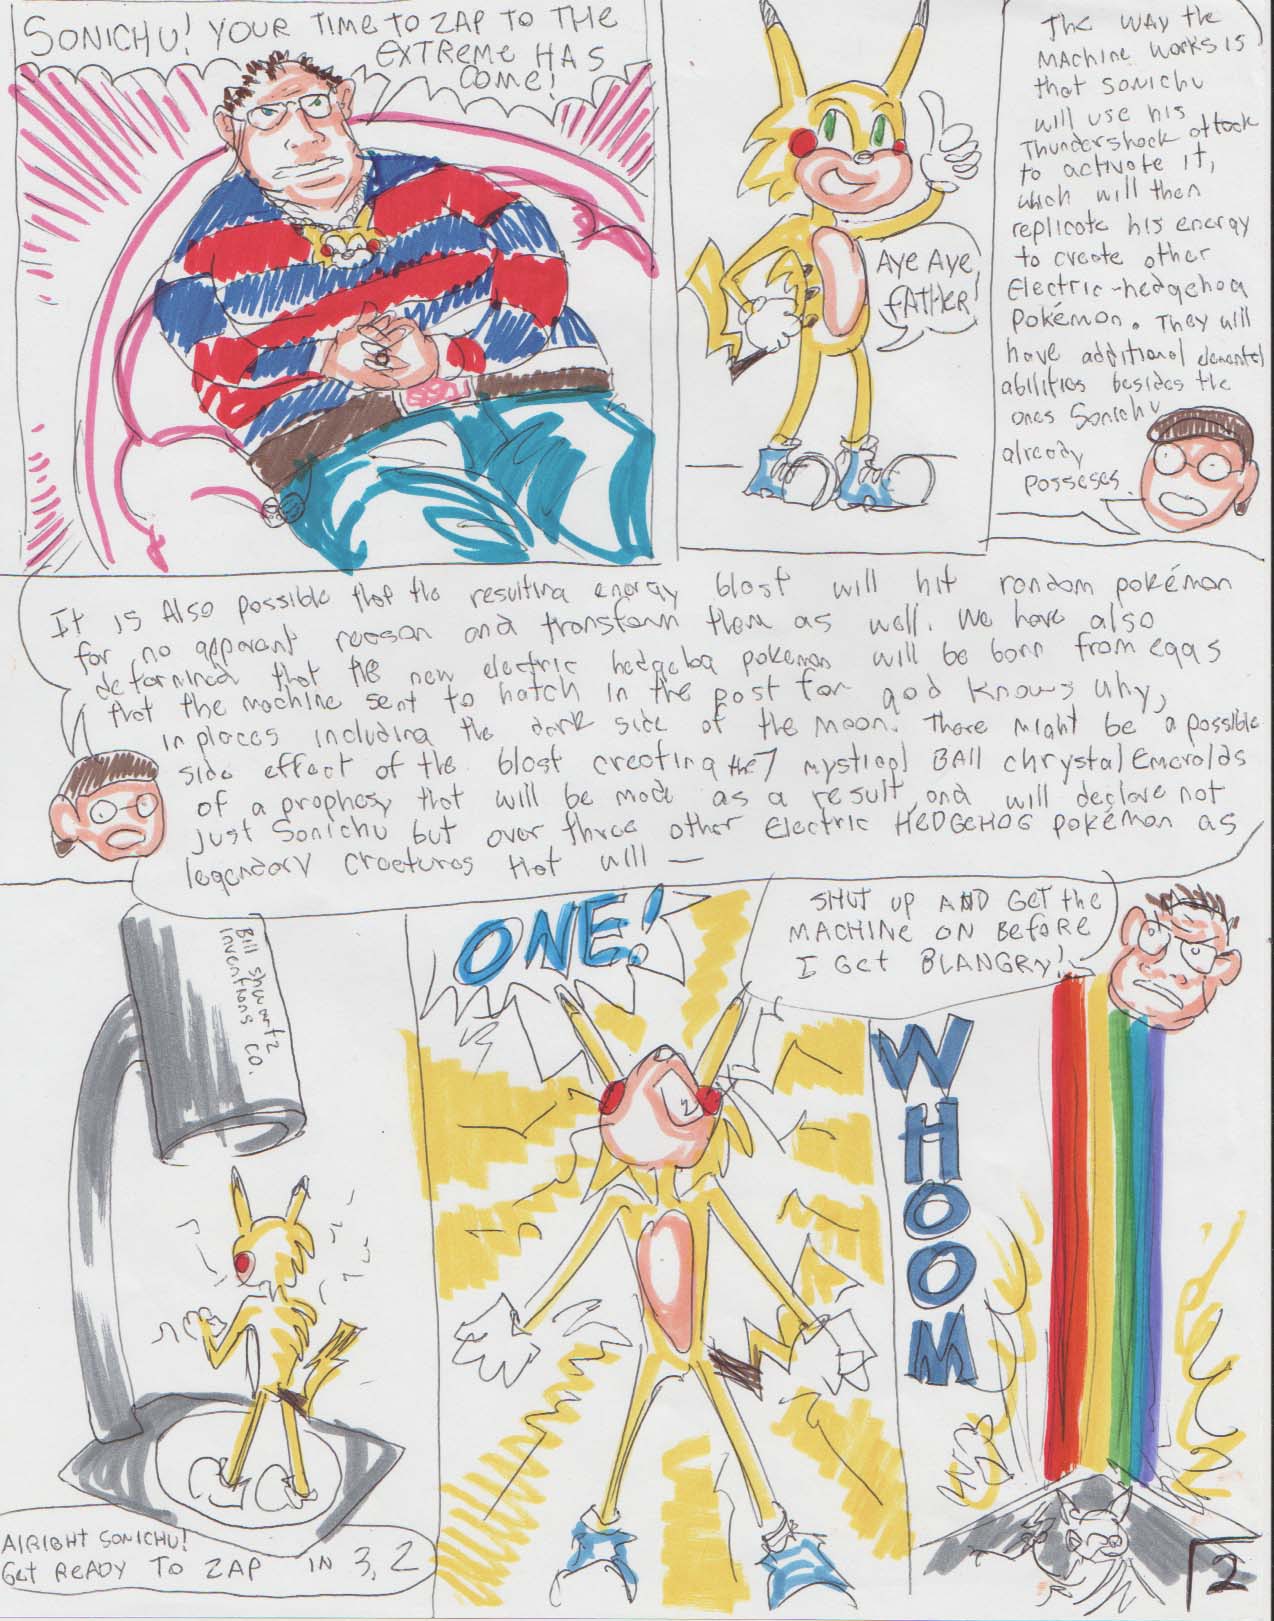 SONICHU! YOUR TIME TO ZAP TO THE
EXTREME HAS
COME!
AYE AYE,
FATHER!
The WAY the
MACHINE WORKS IS
that SONICHU
will use his
Thundershock attack
to activate it,
which will then
replicate his energy
to create other
Electric-hedgehog
Pokémon. They will
have additional elemental
abilities besides the
ones Sonichu
already
posseses.
It is Also possible that the resulting energy blast will hit random pokémon
for no apparent reason and transform them as well. We have also
determined that the new electric hedgehog pokemon will be born from eggs
that the machine sent to hatch in the past for god knows why,
in places including the dark side of the moon. There might be a possible
side effect of the blast creating the 7 mystical BAll chrystal Emeralds
of a prophesy that will be made as a result, and will declare not
just Sonichu but over three other Electric HEDGEHOG pokémon as
legendary creatures that will —
SHUT UP AND GET the
MACHINE ON BEFORE
I GET BLANGRY!
Bill Shwartz
Inventions
CO.
AlRIGHT SONICHU!
Get READY TO ZAP IN 3, 2
ONE!
WHOOM
2